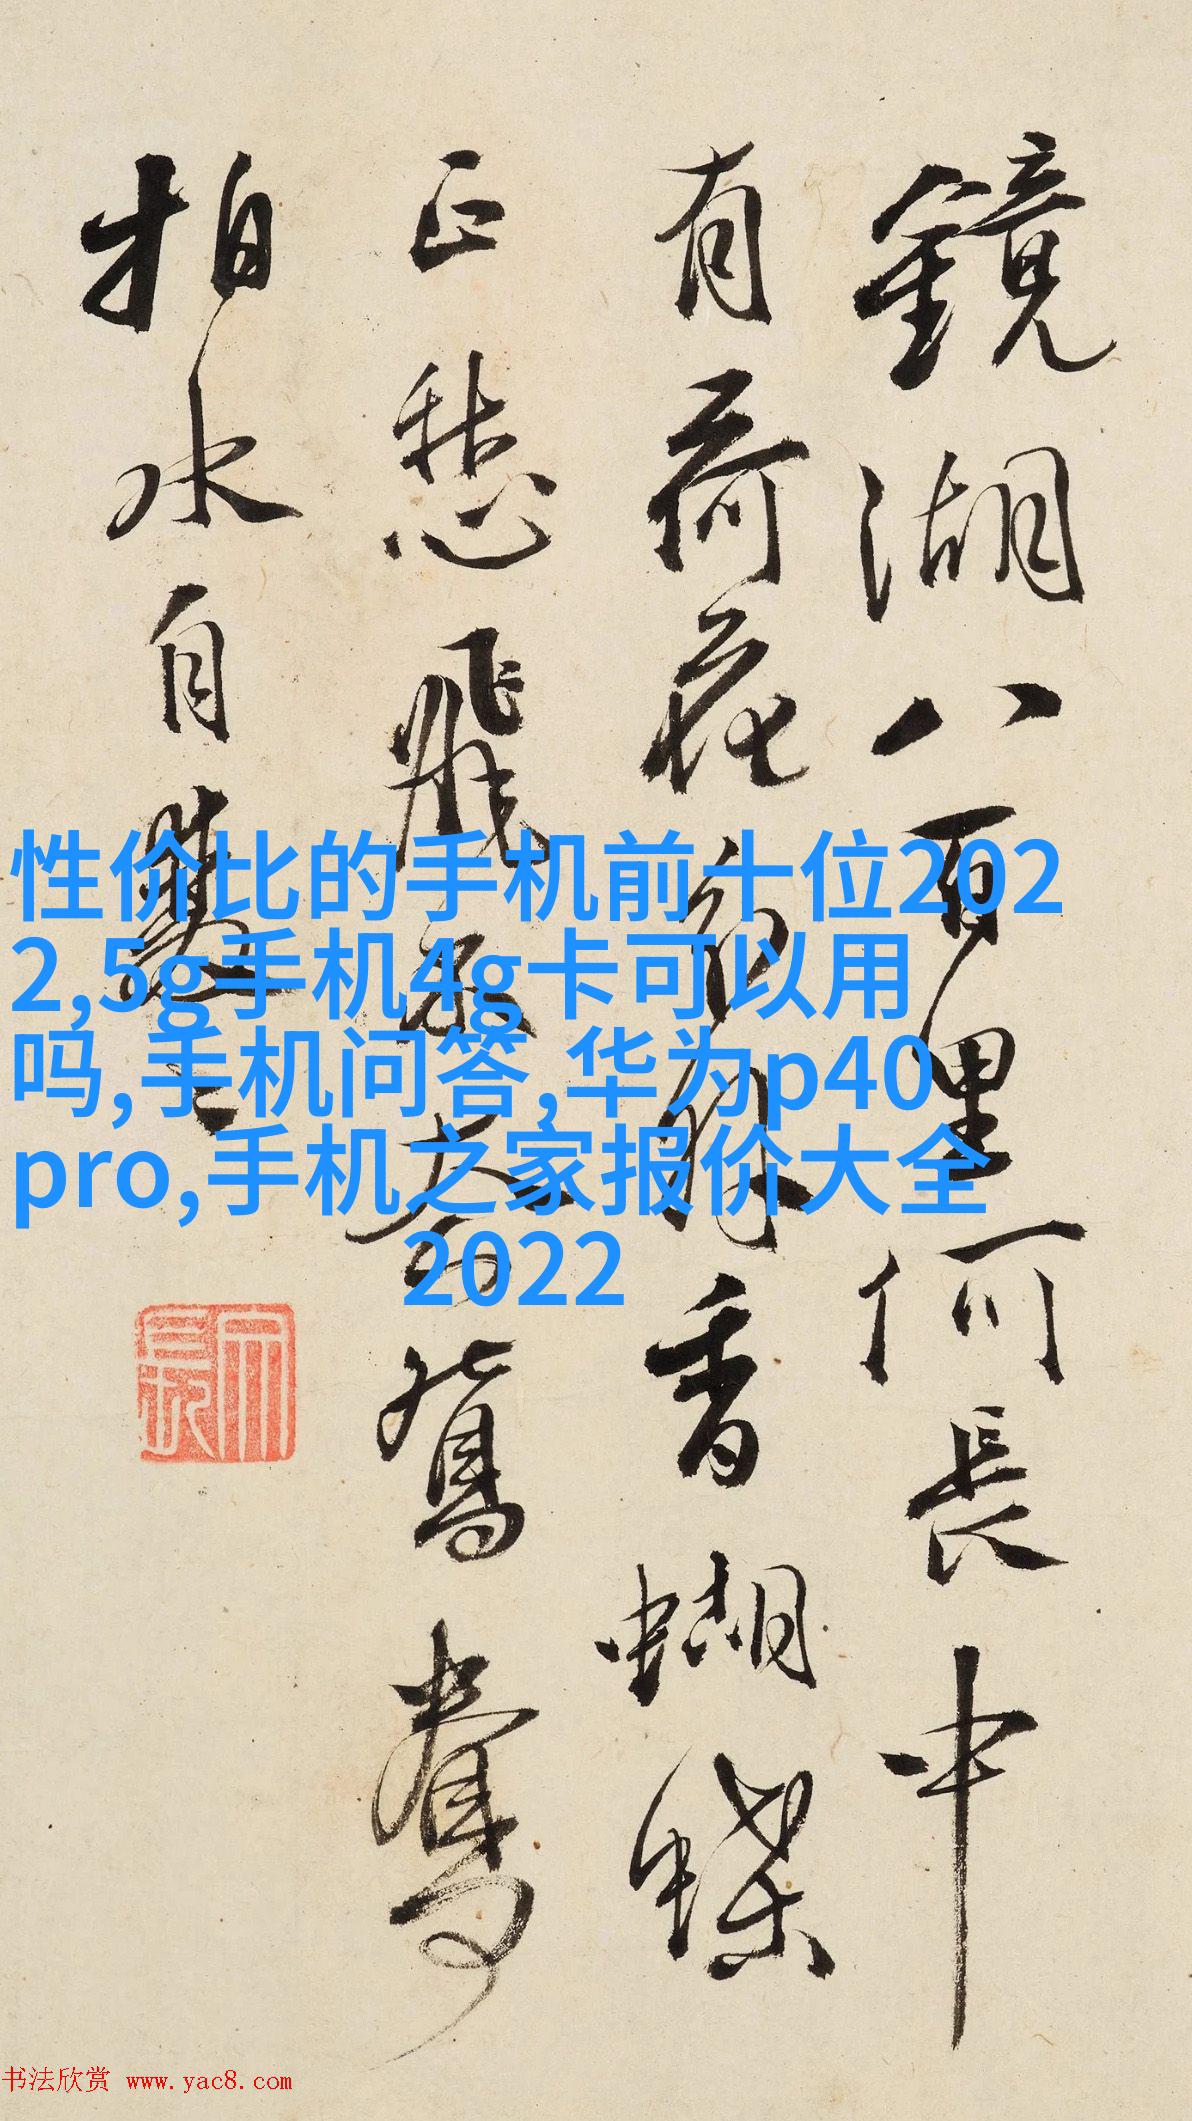 鏡湖八百里何長中
有荷花香蝴蝶
正愁飛不鴛鴦
拍水自雙
性价比的手机前十位202
2,5g手机4g卡可以用
吗,手机问答,华为p40
pro,手机之家报价大全
2022
书法欣赏 www.yac8.com